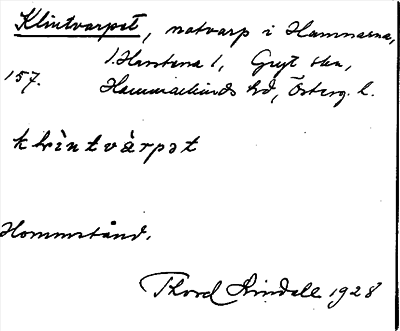 Klintvarpet, notvarp i Hammarna,
1 Harstena 1, Gryt skn,
157. Hammarkinds hd, Österg. l.
klìntvàrpət
Hommstånd.
Thord Lindell 1928